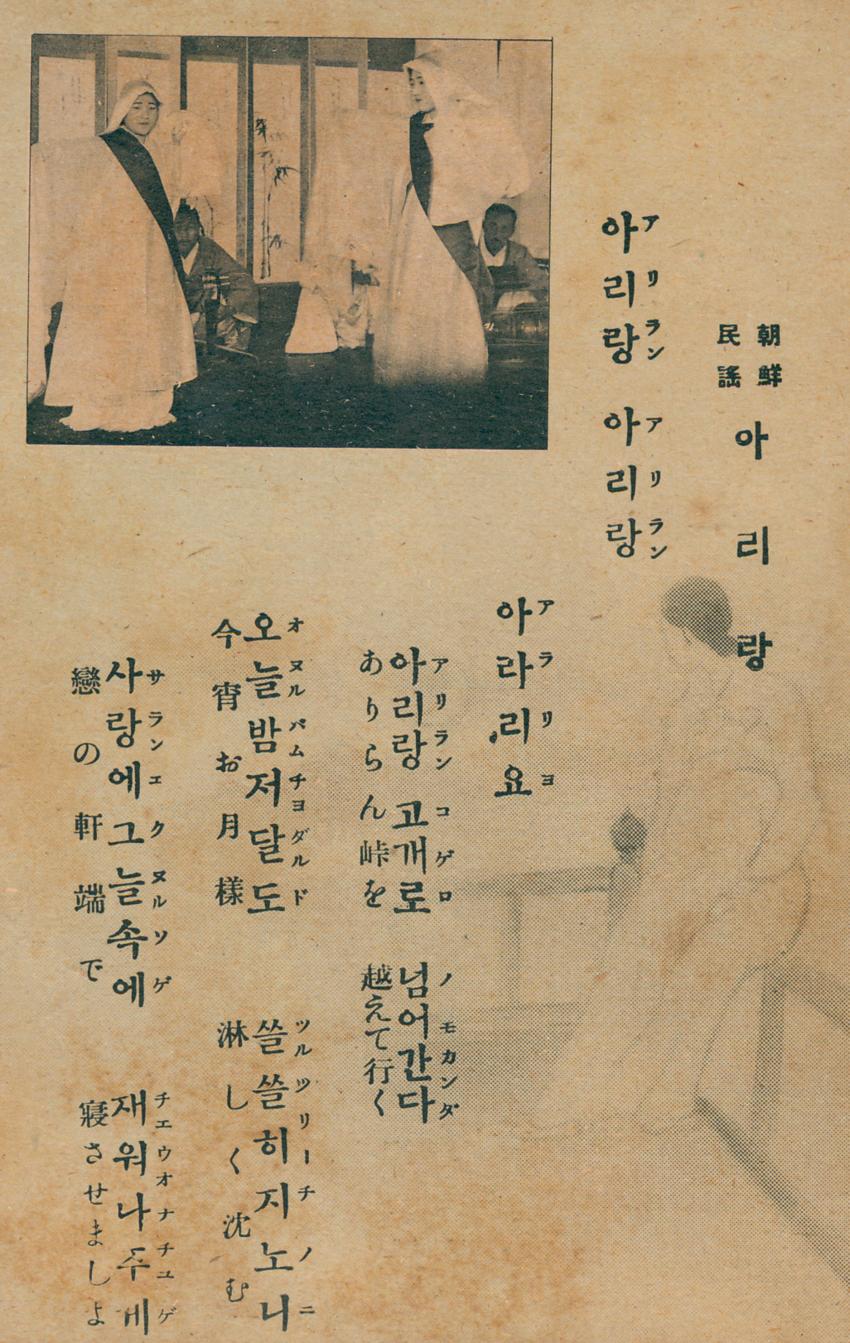 朝鮮
民謠
아리랑
아리랑 아리랑
アリラン アリラン
아라리요
アラリヨ
아리랑 고개로 넘어간다
アリラン コゲロ ノモカンダ
ありらん峠を 越えて行く
오늘밤저달도 쓸쓸히지노니
オヌルパムチヨダルド ツルツリーチノニ
今宵お月樣 淋しく沈む
사랑에그늘속에 재워나주게
サランエクヌルソゲ チエウオナチユゲ
戀の軒端で 寢させましよ